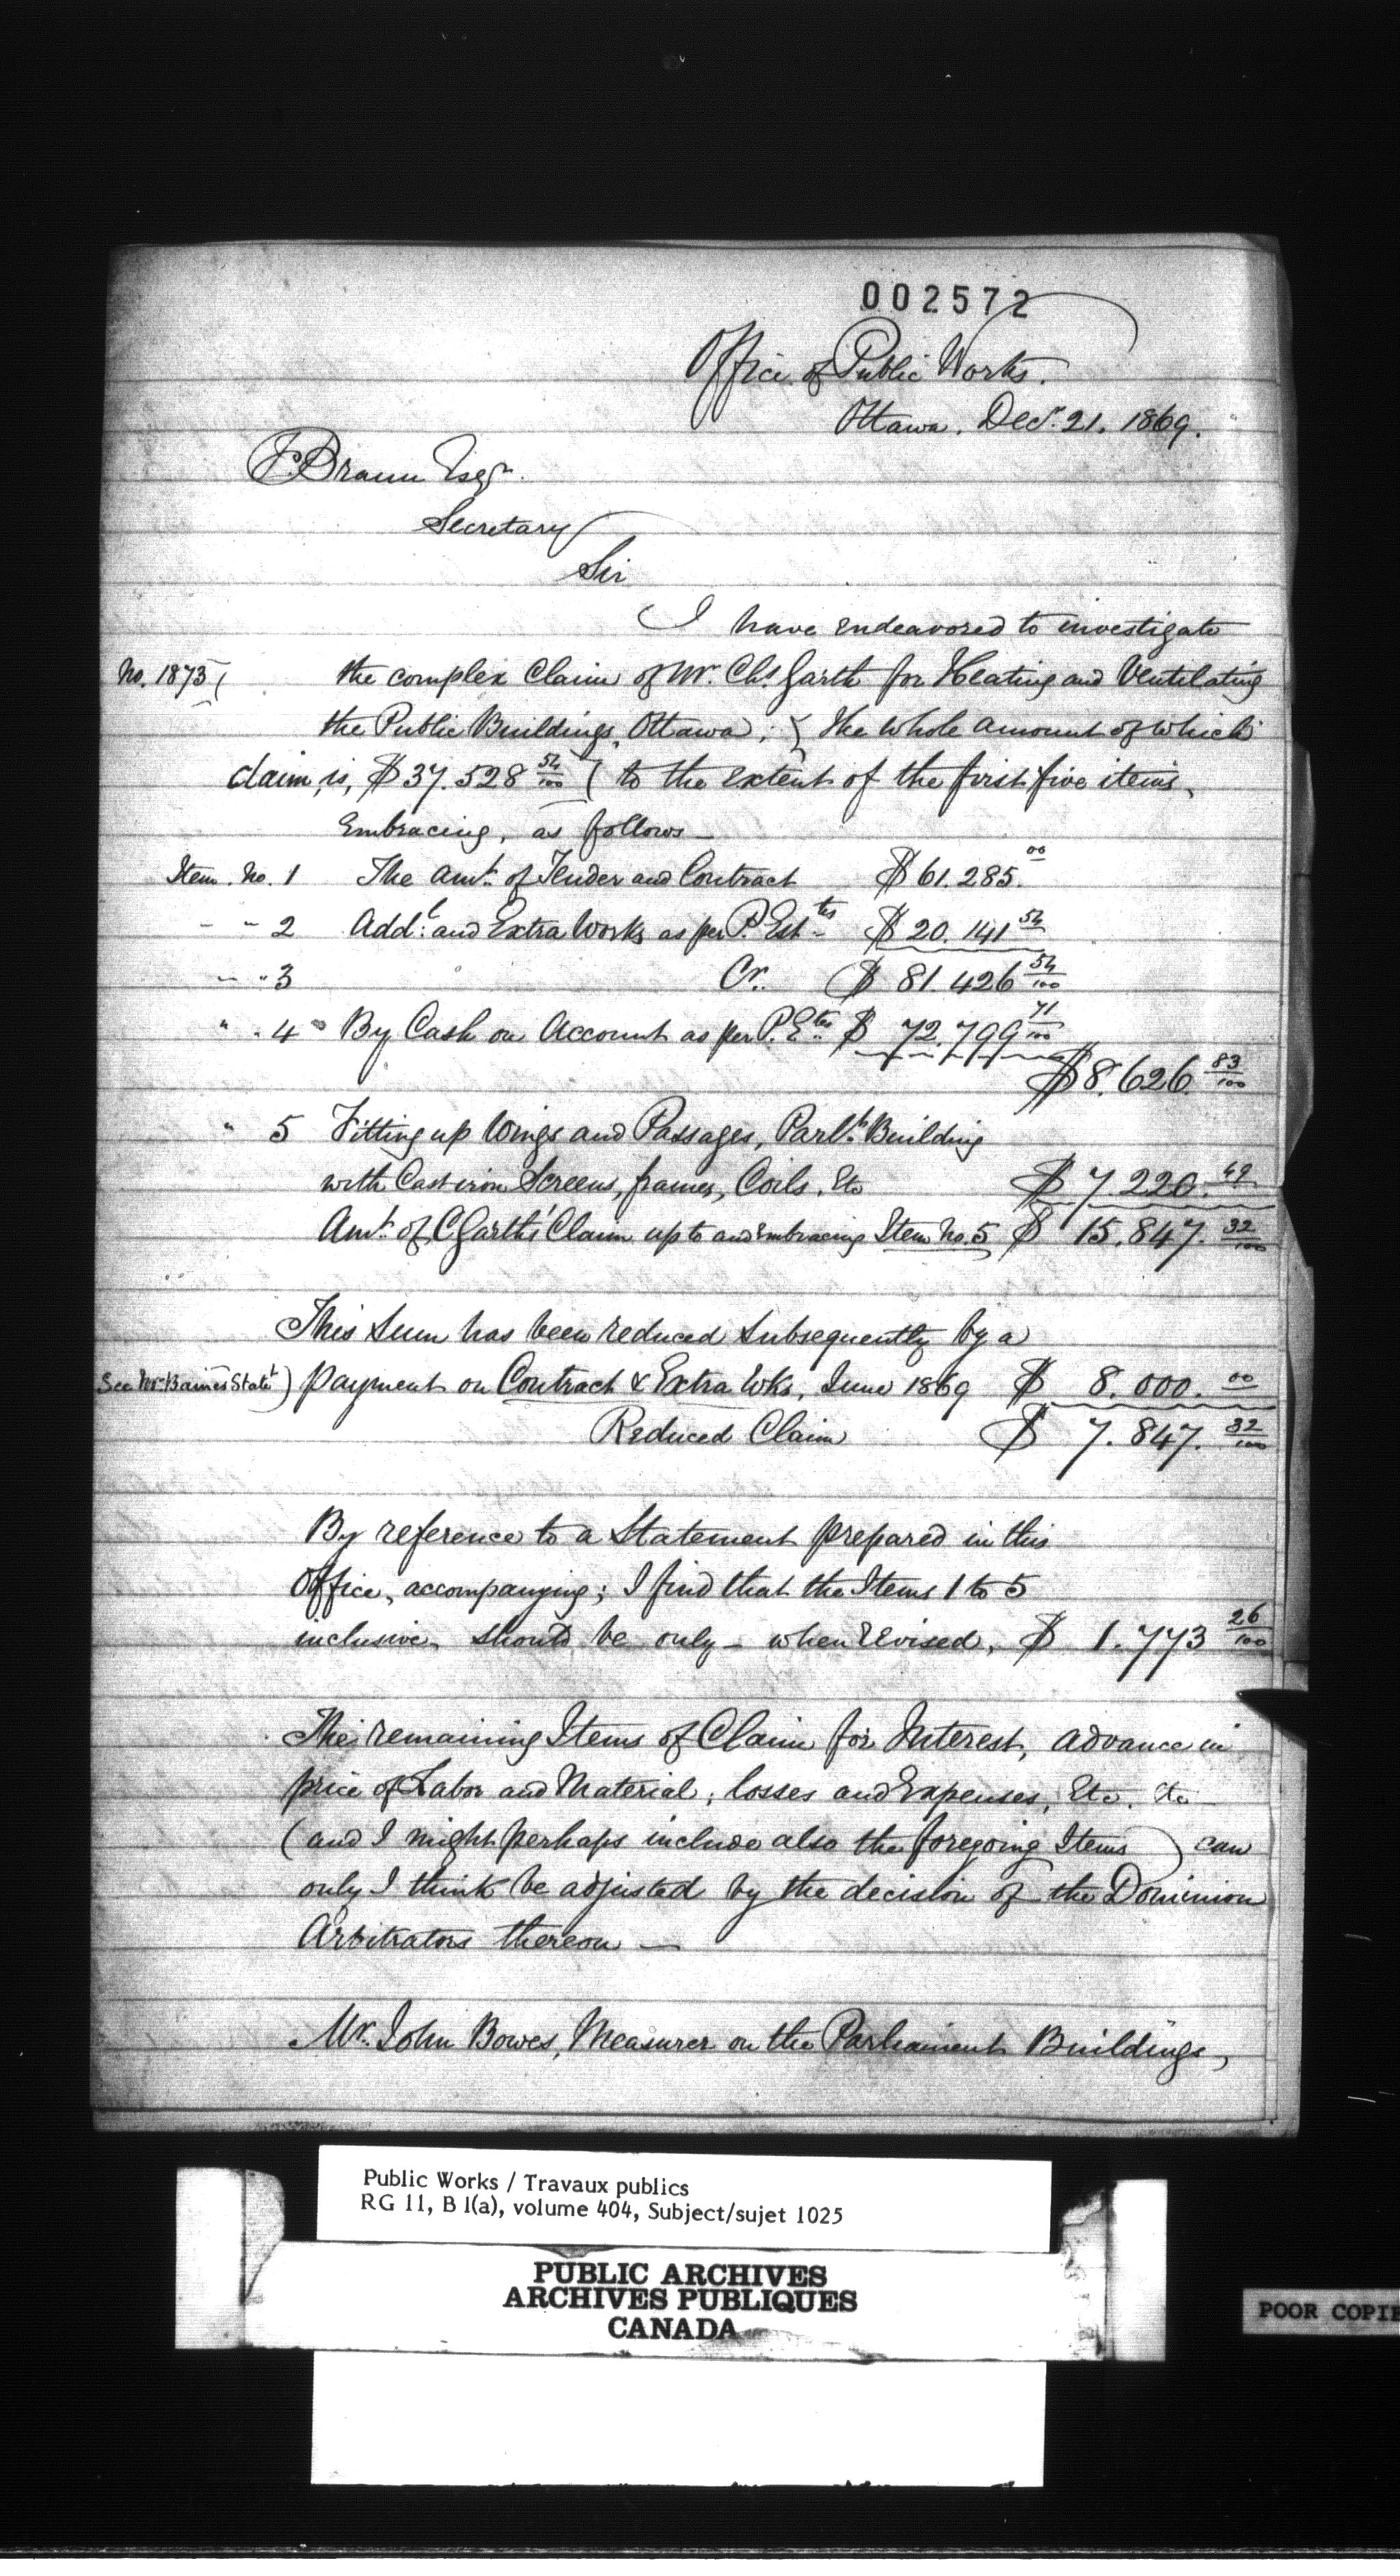 002572
Office of Public Works.
Ottawa. Decr. 21. 1869.
F Braun Esqr.
Secretary
Sir
I have endeavored to investigate
No. 1873 ( the complex Claim of Mr. Chs. Garth for Heating and Ventilating
the Public Buildings, Ottawa; { the whole amount of which
claim, is, $37.528 54/100 ( to the extent of the first five items,
Embracing, as follows —
Item. No. 1 The Amt. of Tender and Contract $61.285. 00
" " 2 Addl. and Extra Works as per P. Estes $ 20.141 54
" " 3 Cr. $ 81.426 54/100
" " 4 By Cash on Account as per P. Etes $ 72.799 71/100
$8.626. 83/100
" 5 Fitting up Wings and Passages, Parlt. Building
with Cast iron Screens, frames, Coils. Etc $ 7 220. 49
Amt. of C Garth's Claim up to and Embracing Item No. 5 $ 15.847. 32/100
This Sum has been reduced subsequently by a
See Mr Baines Statt ) payment on Contract & Extra Wks. June 1869 $ 8.000. 00
Reduced Claim $ 7.847. 32/100
By reference to a Statement prepared in this
Office, accompanying; I find that the Items 1 to 5
inclusive, should be only — when revised, $ 1.773 26/100
The remaining Items of Claim for Interest, advance in
price of Labor and Material; losses and Expenses, Etc. Etc
(and I might perhaps include also the foregoing Items ) can
only I think be adjusted by the decision of the Dominion
Arbitrators thereon —
Mr. John Bowes, Measurer on the Parliament Buildings,
Public Works / Travaux publics
RG 11, B 1(a), volume 404, Subject/sujet 1025
PUBLIC ARCHIVES
ARCHIVES PUBLIQUES
CANADA
POOR COPIE